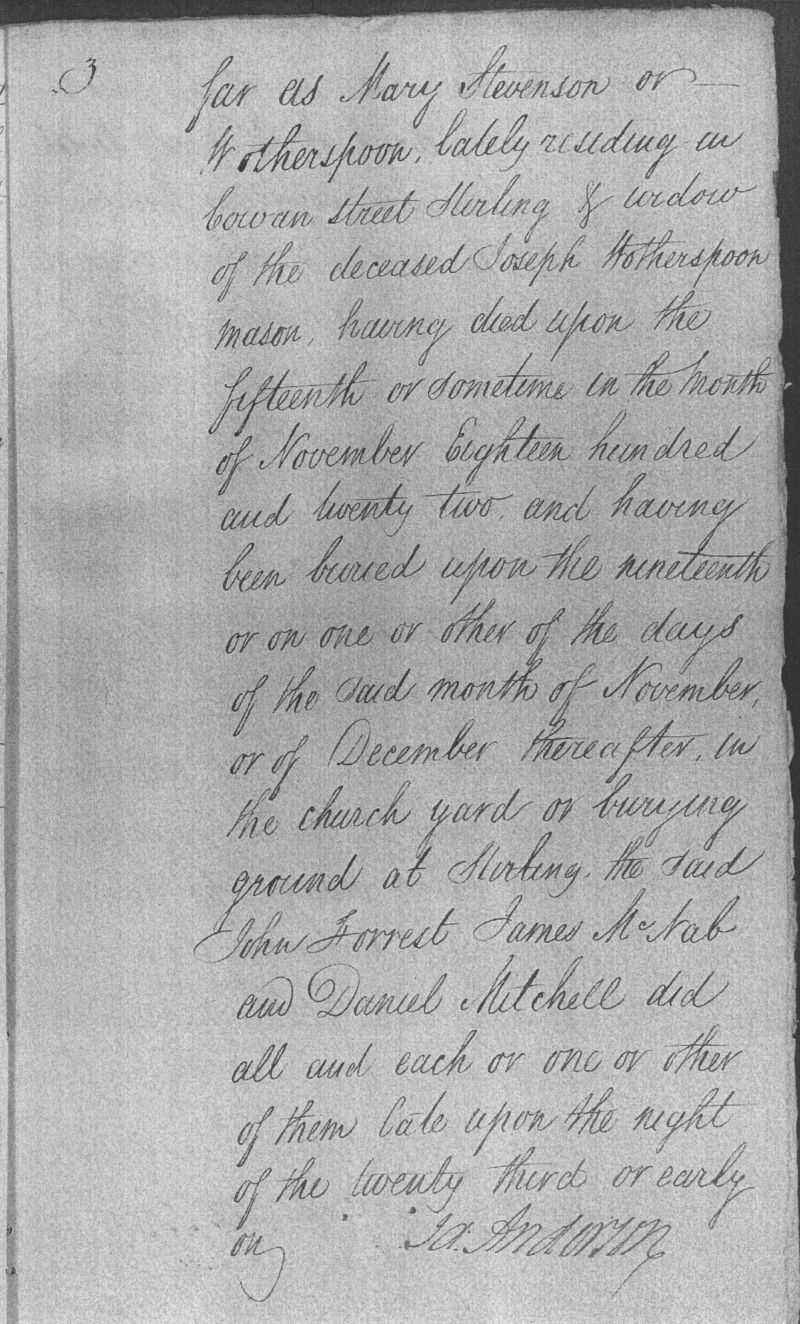 3
far as Mary Stevenson or
Wotherspoon, lately residing in
Cowan street Stirling & widow
of the deceased Joseph Wotherspoon
mason, having died upon the
fifteenth or sometime in the Month
of November Eighteen hundred
and twenty two, and having
been buried upon the nineteenth
or on one or other of the days
of the said month of November,
or of December thereafter, in
the church yard or burying
ground at Stirling, the said
John Forrest James McNab
and Daniel Mitchell did
all and each or one or other
of them late upon the night
of the twenty third or early
on Ja. Anderson